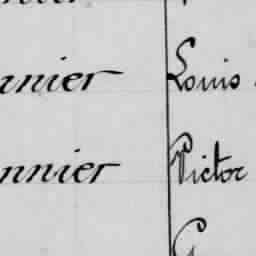 anier Louis
nnier Victor